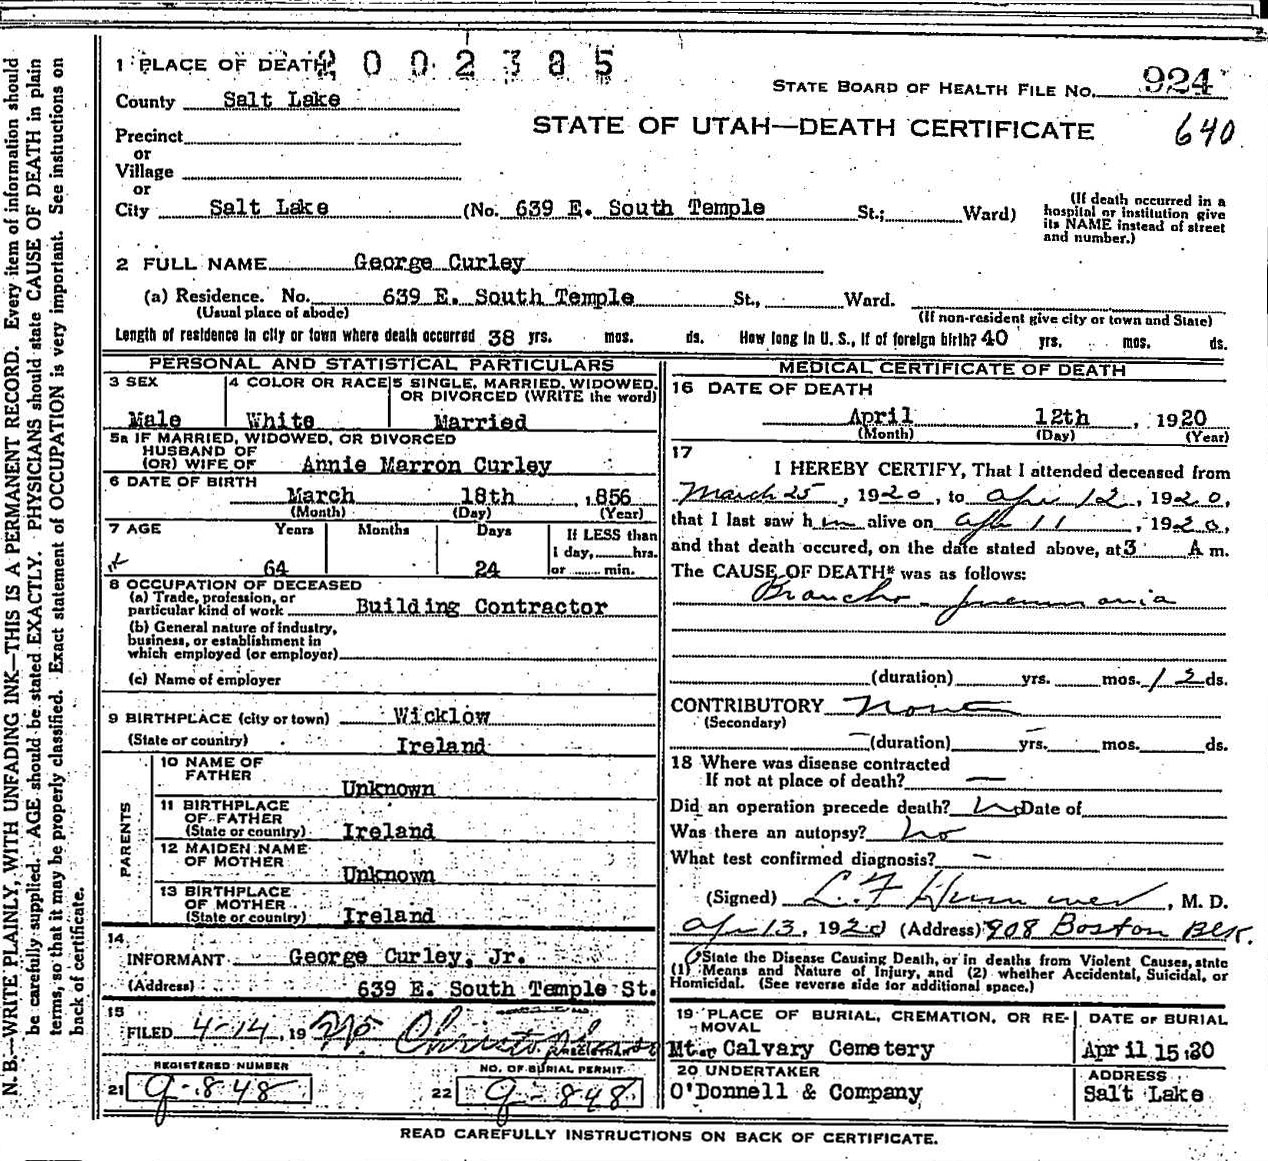 N. B.—WRITE PLAINLY, WITH UNFADING INK—THIS IS A PERMANENT RECORD. Every item of information should
be carefully supplied. AGE should be stated EXACTLY. PHYSICIANS should state CAUSE OF DEATH in plain
terms, so that it may be properly classified. Exact statement of OCCUPATION is very important. See instructions on
back of certificate.
1 PLACE OF DEATH 2002385
STATE BOARD OF HEALTH FILE NO. 924
County Salt Lake
STATE OF UTAH—DEATH CERTIFICATE 640
Precinct
or
Village
or
City Salt Lake (No. 639 E. South Temple St.; Ward)
(If death occurred in a
hospital or institution give
its NAME instead of street
and number.)
2 FULL NAME George Curley
(a) Residence. No. 639 E. South Temple St., Ward.
(Usual place of abode) (If non-resident give city or town and State)
Length of residence in city or town where death occurred 38 yrs. mos. ds. How long in U. S., if of foreign birth? 40 yrs. mos. ds.
PERSONAL AND STATISTICAL PARTICULARS
3 SEX 4 COLOR OR RACE 5 SINGLE, MARRIED, WIDOWED,
OR DIVORCED (WRITE the word)
Male White Married
5a IF MARRIED, WIDOWED, OR DIVORCED
HUSBAND OF
(OR) WIFE OF Annie Marron Curley
6 DATE OF BIRTH
March 18th , 856
(Month) (Day) (Year)
7 AGE Years Months Days If LESS than
1 day, hrs.
64 24 or min.
8 OCCUPATION OF DECEASED
(a) Trade, profession, or
particular kind of work Building Contractor
(b) General nature of industry,
business, or establishment in
which employed (or employer)
(c) Name of employer
9 BIRTHPLACE (city or town) Wicklow
(State or country) Ireland
PARENTS
10 NAME OF
FATHER
Unknown
11 BIRTHPLACE
OF FATHER
(State or country) Ireland
12 MAIDEN NAME
OF MOTHER
Unknown
13 BIRTHPLACE
OF MOTHER
(State or country) Ireland
14
INFORMANT George Curley, Jr.
(Address) 639 E. South Temple St.
15
FILED 4-14, 19
REGISTRAR
REGISTERED NUMBER NO. OF BURIAL PERMIT
21 G-848 22 G-848
MEDICAL CERTIFICATE OF DEATH
16 DATE OF DEATH
April 12th , 1920
(Month) (Day) (Year)
17
I HEREBY CERTIFY, That I attended deceased from
March 25, 1920, to Apr 12, 1920,
that I last saw him alive on Apr 11, 1920,
and that death occured, on the date stated above, at 3 A m.
The CAUSE OF DEATH* was as follows:
Broncho-pneumonia
(duration) yrs. mos. 12 ds.
CONTRIBUTORY None
(Secondary)
(duration) yrs. mos. ds.
18 Where was disease contracted
If not at place of death? —
Did an operation precede death? No Date of
Was there an autopsy? no
What test confirmed diagnosis? —
(Signed) L. F. , M. D.
Apr 13, 1920 (Address) 908 Boston Blk.
State the Disease Causing Death, or in deaths from Violent Causes, state
(1) Means and Nature of Injury, and (2) whether Accidental, Suicidal, or
Homicidal. (See reverse side for additional space.)
19 PLACE OF BURIAL, CREMATION, OR RE-
MOVAL
Mt. Calvary Cemetery
DATE OF BURIAL
April 15 20
20 UNDERTAKER
O'Donnell & Company
ADDRESS
Salt Lake
READ CAREFULLY INSTRUCTIONS ON BACK OF CERTIFICATE.